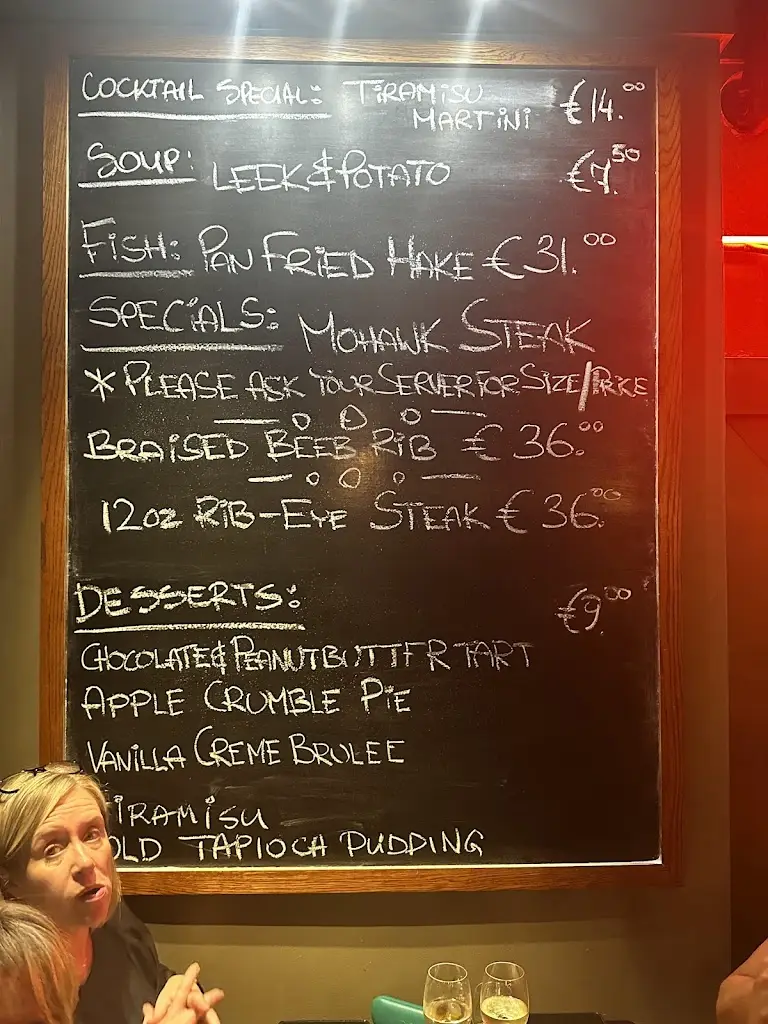 COCKTAIL SPECIAL: TIRAMISU MARTINI €14.00
SOUP: LEEK & POTATO €7.50
FISH: PAN FRIED HAKE €31.00
SPECIALS: MOHAWK STEAK
* PLEASE ASK YOUR SERVER FOR SIZE/PRICE
BRAISED BEEB RIB €36.00
12oz RIB-EYE STEAK €36.00
DESSERTS: €9.00
CHOCOLATE & PEANUTBUTTER TART
APPLE CRUMBLE PIE
VANILLA CREME BRULEE
IRAMISU
OLD TAPIOCA PUDDING